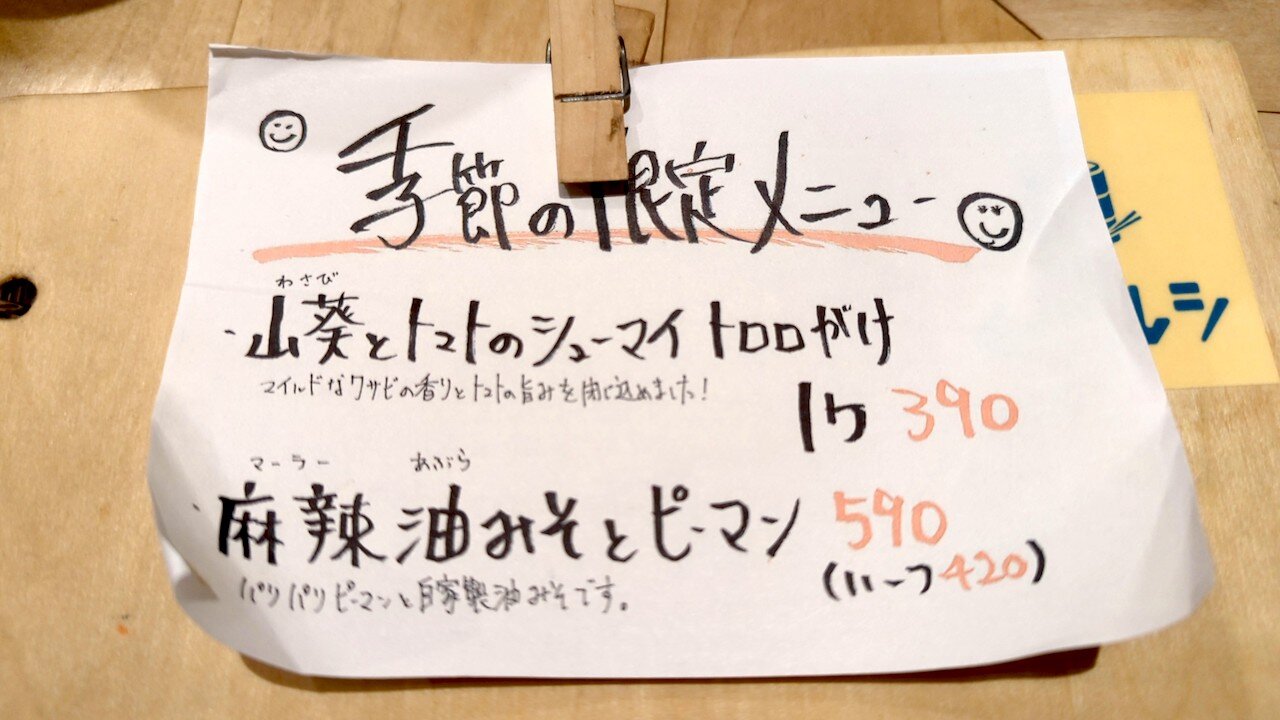 季節の限定メニュー
わさび
・山葵とトマトのシューマイトロロがけ
マイルドなワサビの香りとトマトの旨みを閉じ込めました!
1ケ 390
マーラー あぶら
・麻辣油みそとピーマン 590
(ハーフ420)
パリパリピーマンと自家製油みそです。
ルシ